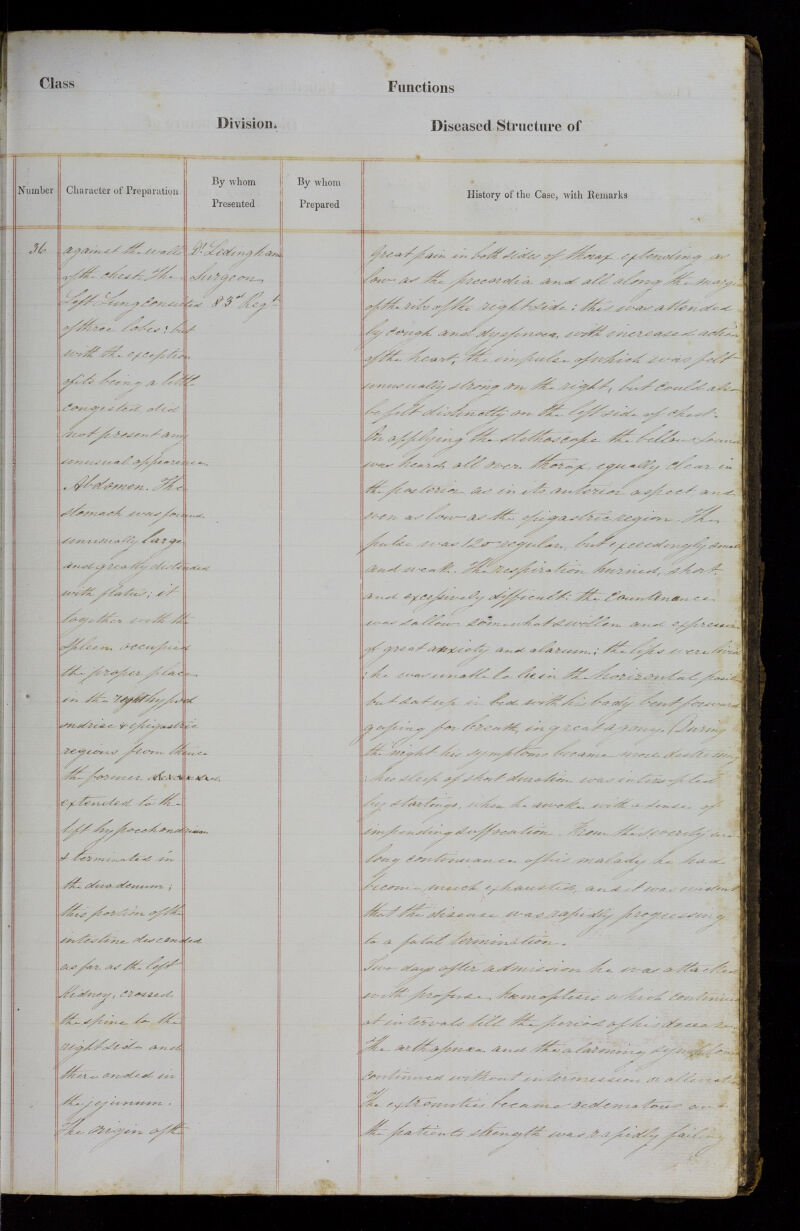 Class
Functions
Division.
Diseased Structure of
Number
Character of Preparation
By whom
Presented
By whom
Prepared
History of the Case, with Remarks
36
against the walls
of the chest. The
Left Lung consisted
of three lobes; but
with the exception
of its being a little
congested did
not present any
unusual appearance
Abdomen. The
stomach was found
unusually large
and greatly distended
with flatus; it
together with the
Spleen occupied
the proper place
in the right hypoch
ondriac & epigastric
regions from thence
the former
extended to the
left hypochondrium
& terminated in
the duodenum;
this portion of the
intestine descended
as far as the left
Kidney, crossed
the spine to the
right side and
there ended in
the jejunum.
The origin of the
Dr. Ledingham
Surgeon
83rd Regt
Great pain in both sides of thorax extending as
low as the precordia and all along the margin
of the ribs of the right side: this was attended
by cough and dyspnoea, with increased action
of the heart; the impulse of which was felt
unusually strong on the right, but could also
be felt distinctly on the left side of chest.
On applying the stethoscope the bellows sound
was heard all over thorax, equally clear in
the posterior as in its anterior aspect and
even as low as the epigastric region. The
pulse was 120 regular, but exceedingly small
and weak. The respiration hurried, short
and excessively difficult: the countenance
was sallow somewhat swollen and expressive
of great anxiety and alarum; the lips were livid
; he was unable to lie in the horizontal position
but sat up in bed with his body bent forward
gasping for breath, in great agony. During
the night his symptoms became more distressing
; his sleep of short duration was interrupted
by startings, when he awoke with a sense of
impending suffocation. From the severity and
long continuance of his malady he had
become much exhausted, and it was evident
that the disease was rapidly progressing
to a fatal termination.
Two days after admission he was attacked
with profuse hæmoptisis which continued
at intervals till the period of his decease.
The orthopnœa and the alarming symptoms
continued without intermission or alleviation
The extremities became œdematous and
the patients strength was rapidly failing